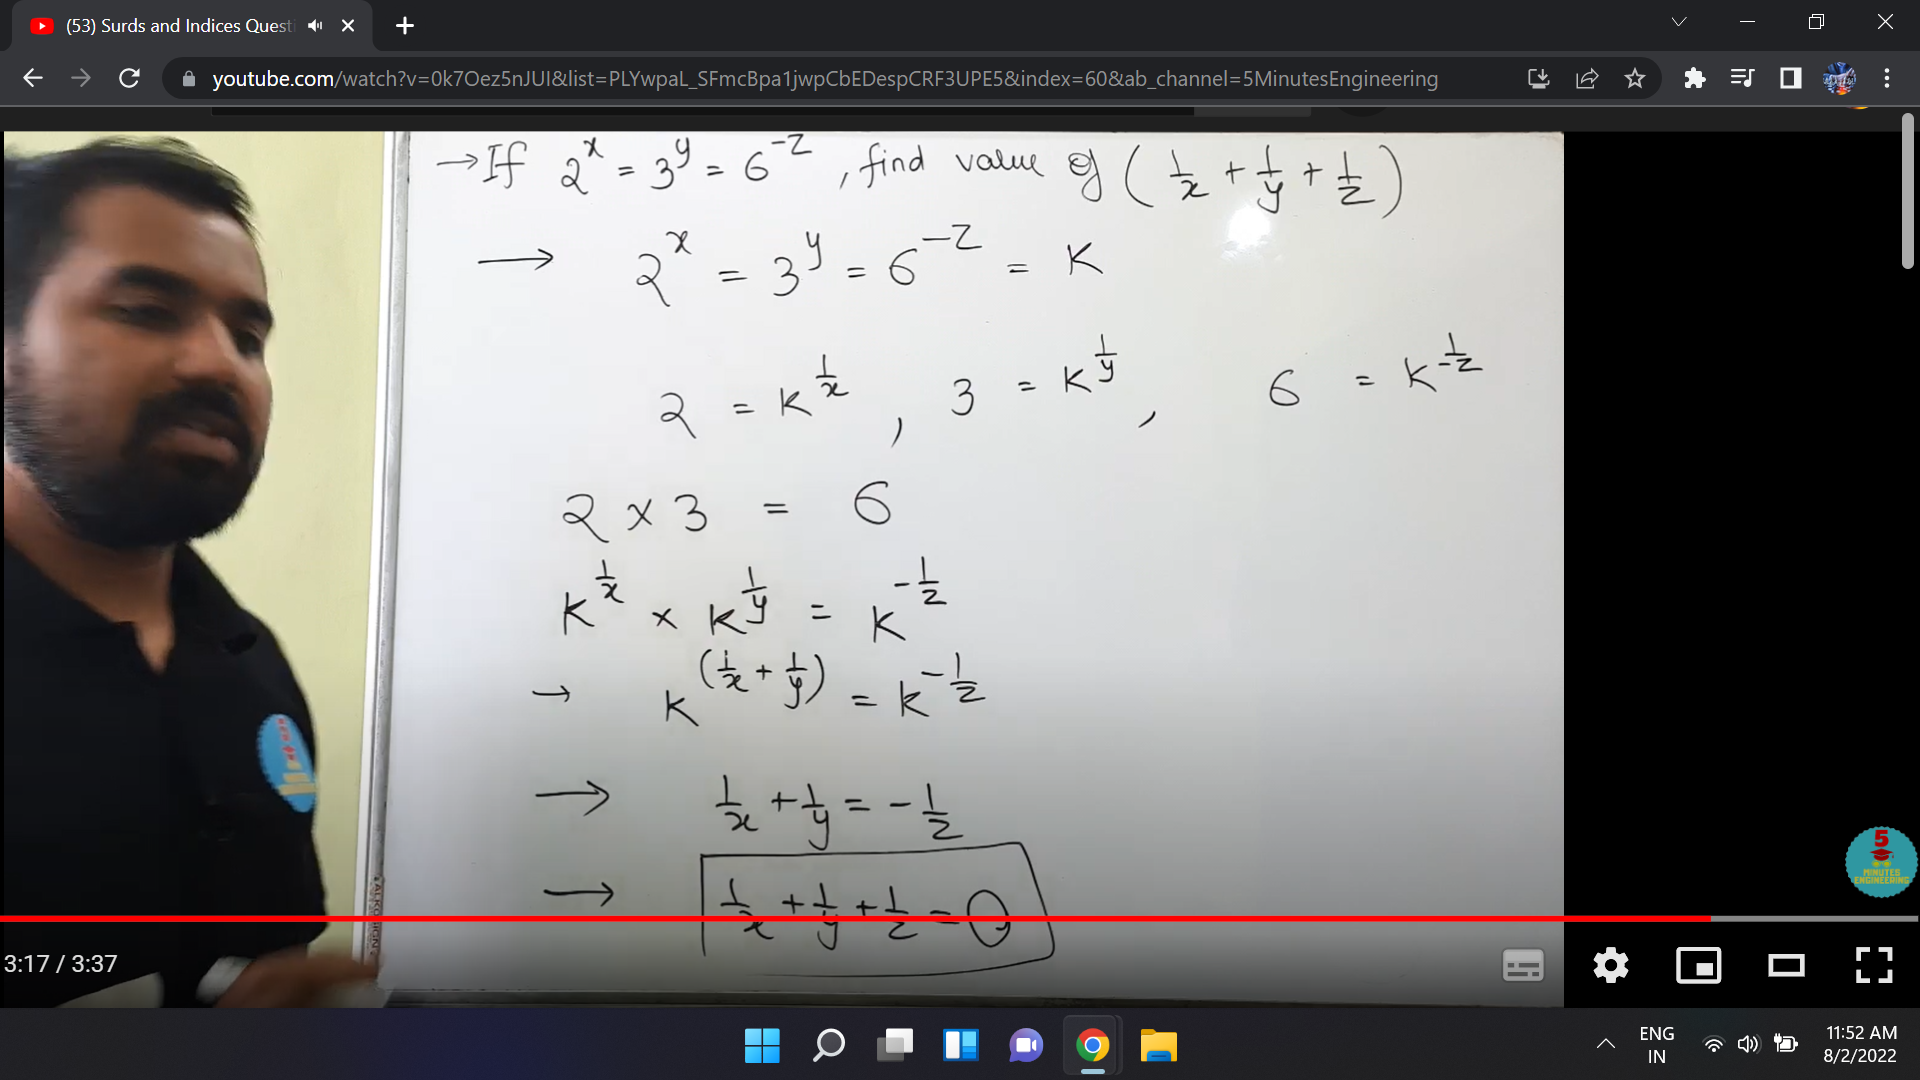 (53) Surds and Indices Questi
youtube.com/watch?v=0k7Oez5nJUI&list=PLYwpaL_SFmcBpa1jwpCbEDespCRF3UPE5&index=60&ab_channel=5MinutesEngineering
→ If 2^x = 3^y = 6^-z , find value of (1/x + 1/y + 1/z)
→ 2^x = 3^y = 6^-z = K
2 = K^1/x , 3 = K^1/y , 6 = K^1/-z
2 × 3 = 6
K^1/x × K^1/y = K^-1/z
→ K^(1/x + 1/y) = K^-1/z
→ 1/x + 1/y = -1/z
→ 1/x + 1/y + 1/z = 0
5
MINUTES
ENGINEERING
3:17 / 3:37
ENG
IN
11:52 AM
8/2/2022